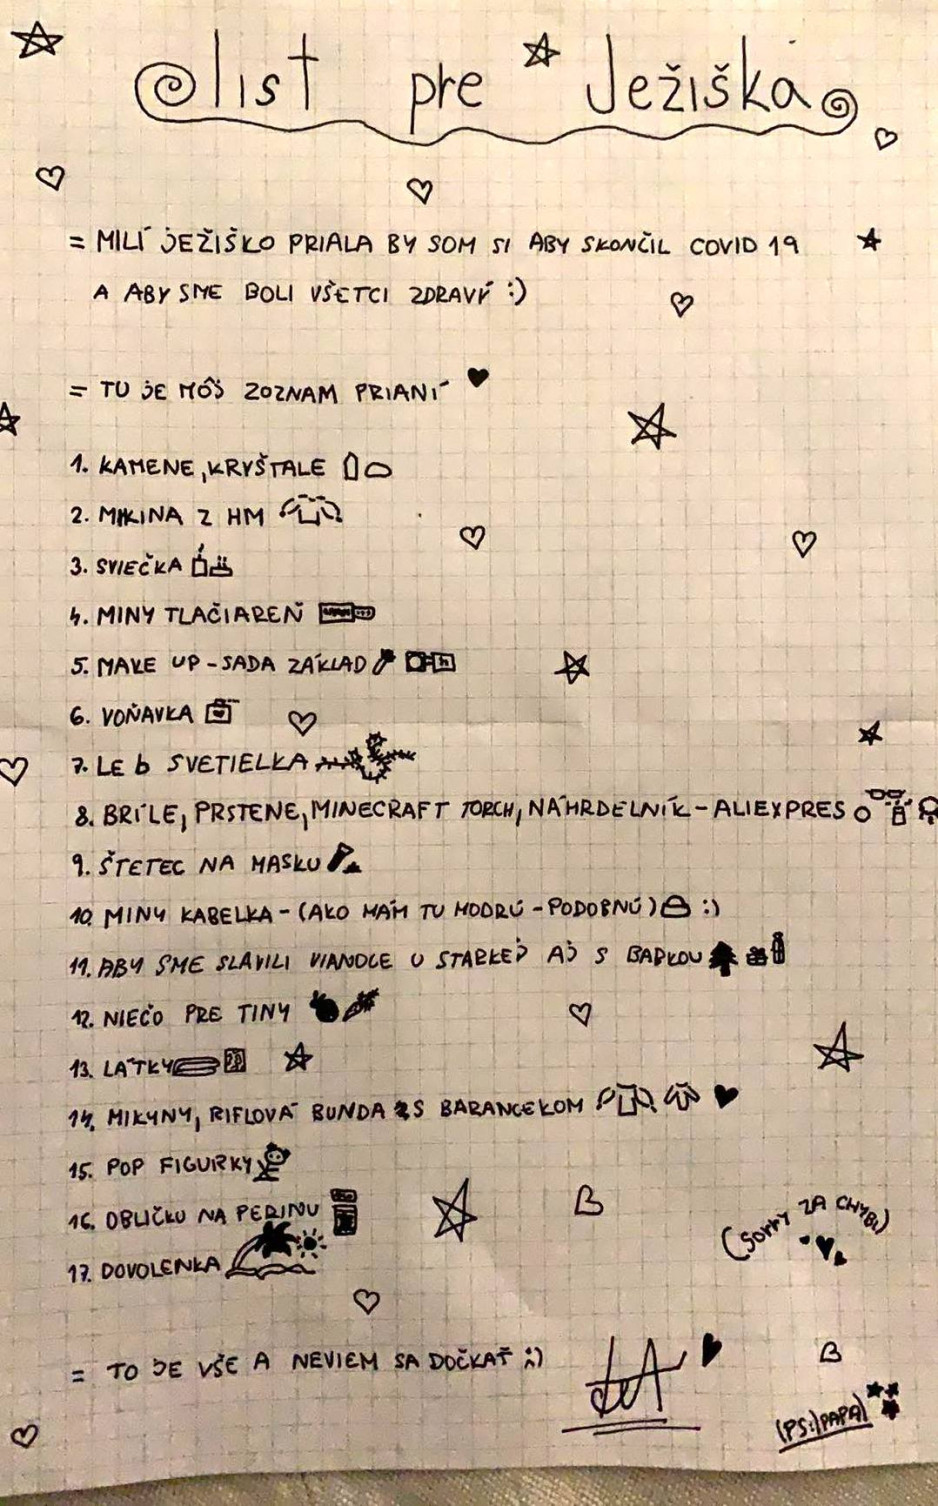 list pre Ježiška
= MILÍ JEŽIŠKO PRIALA BY SOM SI ABY SKONČIL COVID 19
A ABY SME BOLI VŠETCI ZDRAVÝ :)
= TU JE MÔJ ZOZNAM PRIANÍ
1. KAMENE, KRYŠTALE
2. MIKINA Z HM
3. SVIEČKA
4. MINY TLAČIAREŇ
5. MAKE UP - SADA ZÁKLAD
6. VOŇAVKA
7. LEb SVETIELKA
8. BRÍLE, PRSTENE, MINECRAFT TORCH, NÁHRDELNÍK - ALIEXPRES
9. ŠTETEC NA MASKU
10. MINY KABELKA - (AKO MÁM TU MODRÚ - PODOBNÚ) :)
11. ABY SME SLÁVILI VIANOCE U STARKEJ AJ S BABKOU
12. NIEČO PRE TINY
13. LÁTKY
14. MIKYNY, RIFLOVÁ BUNDA S BARANČEKOM
15. POP FIGURKY
16. OBLIČKU NA PERINU
17. DOVOLENKA
(SORRY ZA CHYBU)
= TO JE VŠE A NEVIEM SA DOČKAŤ :)
(PS:) PAPA)